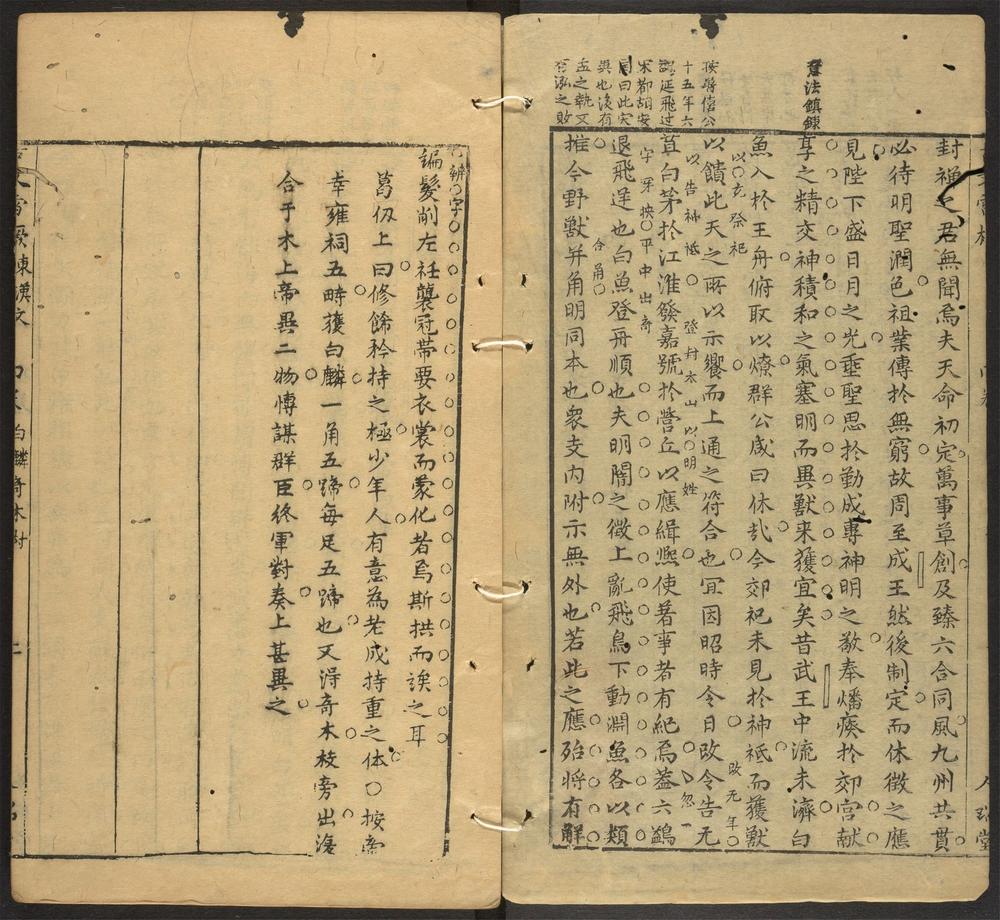 封禪之君無聞焉夫天命初定萬事草創及臻六合同風九州共貫
必待明聖潤色祖業傳於無窮故周至成王然後制定而休徵之應
見陛下盛日月之光垂聖思於勤成專神明之敬奉燔瘞於郊宮献
享之精交神積和之氣塞明而異獸来獲宜矣昔武王中流未濟白
魚入於王舟俯取以燎群公咸曰休㢤今郊祀未見於神祇而獲獸
以饋此天之所以示饗而上通之符合也冝因昭時令日攺今告元
苴白茅於江淮發嘉號於營丘以應緝熈使著事者有紀焉盖六鷁
退飛逆也白魚登舟順也夫明闇之徴上亂飛鳥下動淵魚各以類
推今野獸并角明同本也衆支内附示無外也若此之應殆将有解
意法鎮鍊
按魯僖公
十五年六
鷁退飛过
宋都胡安
国曰此宋
㐮之執又
以〇充祭祀
攺元年
以告神祇
登封太山以〇明姓
平中出奇
合角
忽一
人瑞堂
編髮削左衽襲冠帯要衣裳而蒙化者焉斯拱而俟之耳
葛仭上曰修餙矜持之極少年人有意為老成持重之体〇按帝
幸雍祠五畤獲白麟一角五蹄每足五蹄也又淂奇木枝旁出澓
合于木上帝異二物愽謀群臣終軍對奏上甚異之
白麟竒木對